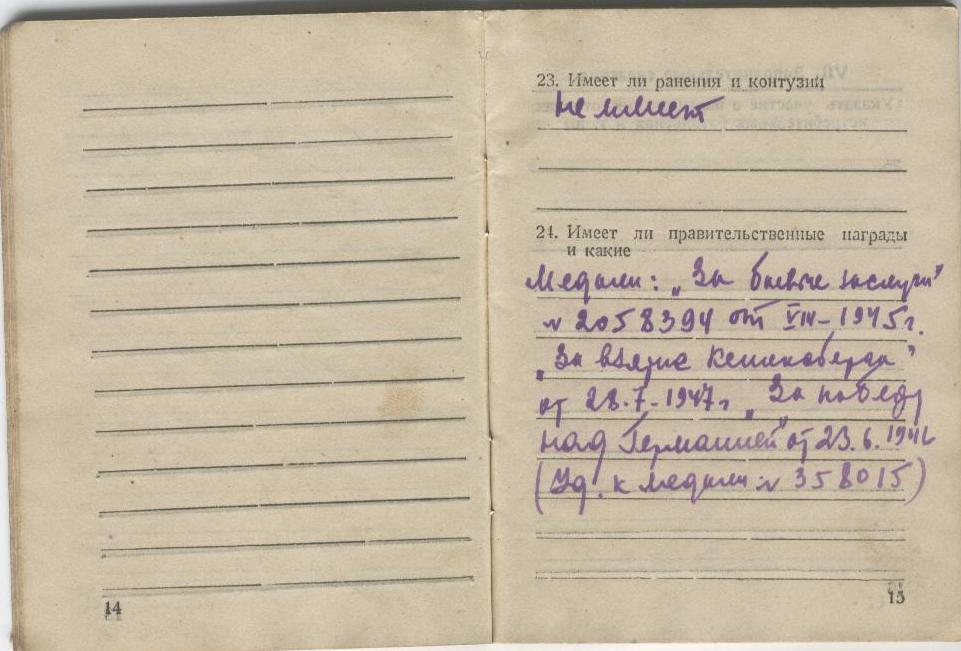 23. Имеет ли ранения и контузии
не имеет
24. Имеет ли правительственные награды
и какие
Медали: „За боевые заслуги”
№ 2058394 от VIII–1945г.
„За взятие Кенигсберга”
от 28.7.–1947г „За победу
над Германией” от 23.6.1946
(Уд. к медали № 358015)
14
15